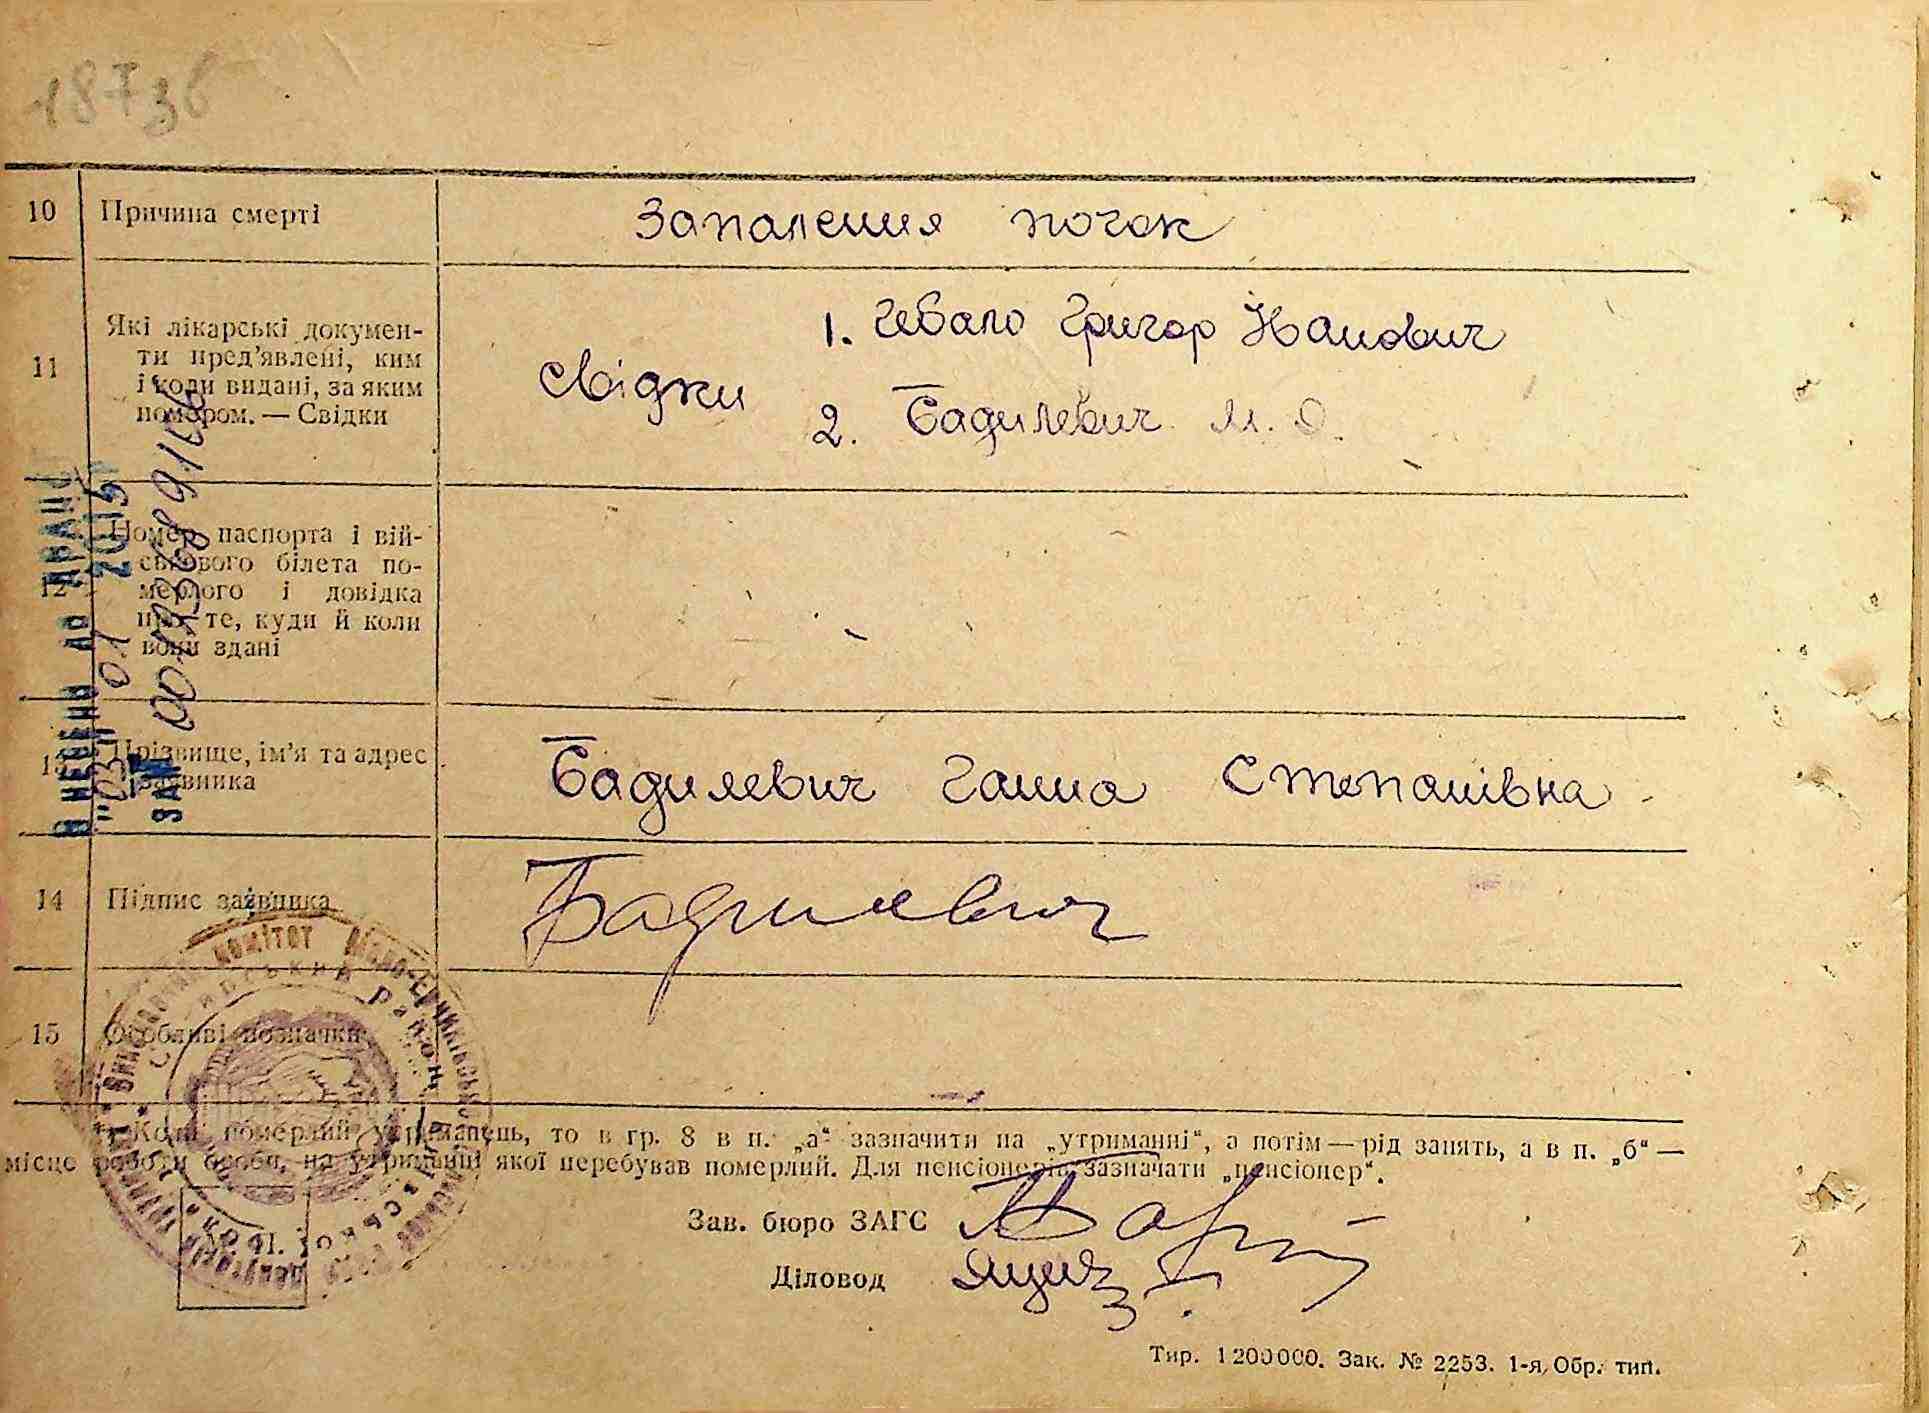 18736
10 Причина смерті Запалення почок
11 Які лікарські докумен-
ти пред'явлені, ким
і коли видані, за яким
номером. — Свідки
Свідки 1. Гебало Григор Іванович
2. Бадилевич М. О.
12 Номер паспорта і вій-
ськового білета по-
мерлого і довідка
про те, куди й коли
вони здані
13 Прізвище, ім'я та адрес
заявника
Бадилевич Ганна Степанівна
14 Підпис заявника Бадилевич
15 Особливі позначки
ВНЕСЕНО ДО ДРАЦС
"03" 01 2015
ЗА №
*) Коли померлий утриманець, то в гр. 8 в п. „а“ зазначити на „утриманні“, а потім — рід занять, а в п. „б“ —
місце роботи особи, на утриманні якої перебував померлий. Для пенсіонерів зазначати „пенсіонер“.
Зав. бюро ЗАГС
Діловод
М. П.
Тир. 1200000. Зак. № 2253. 1-я Обр. тип.